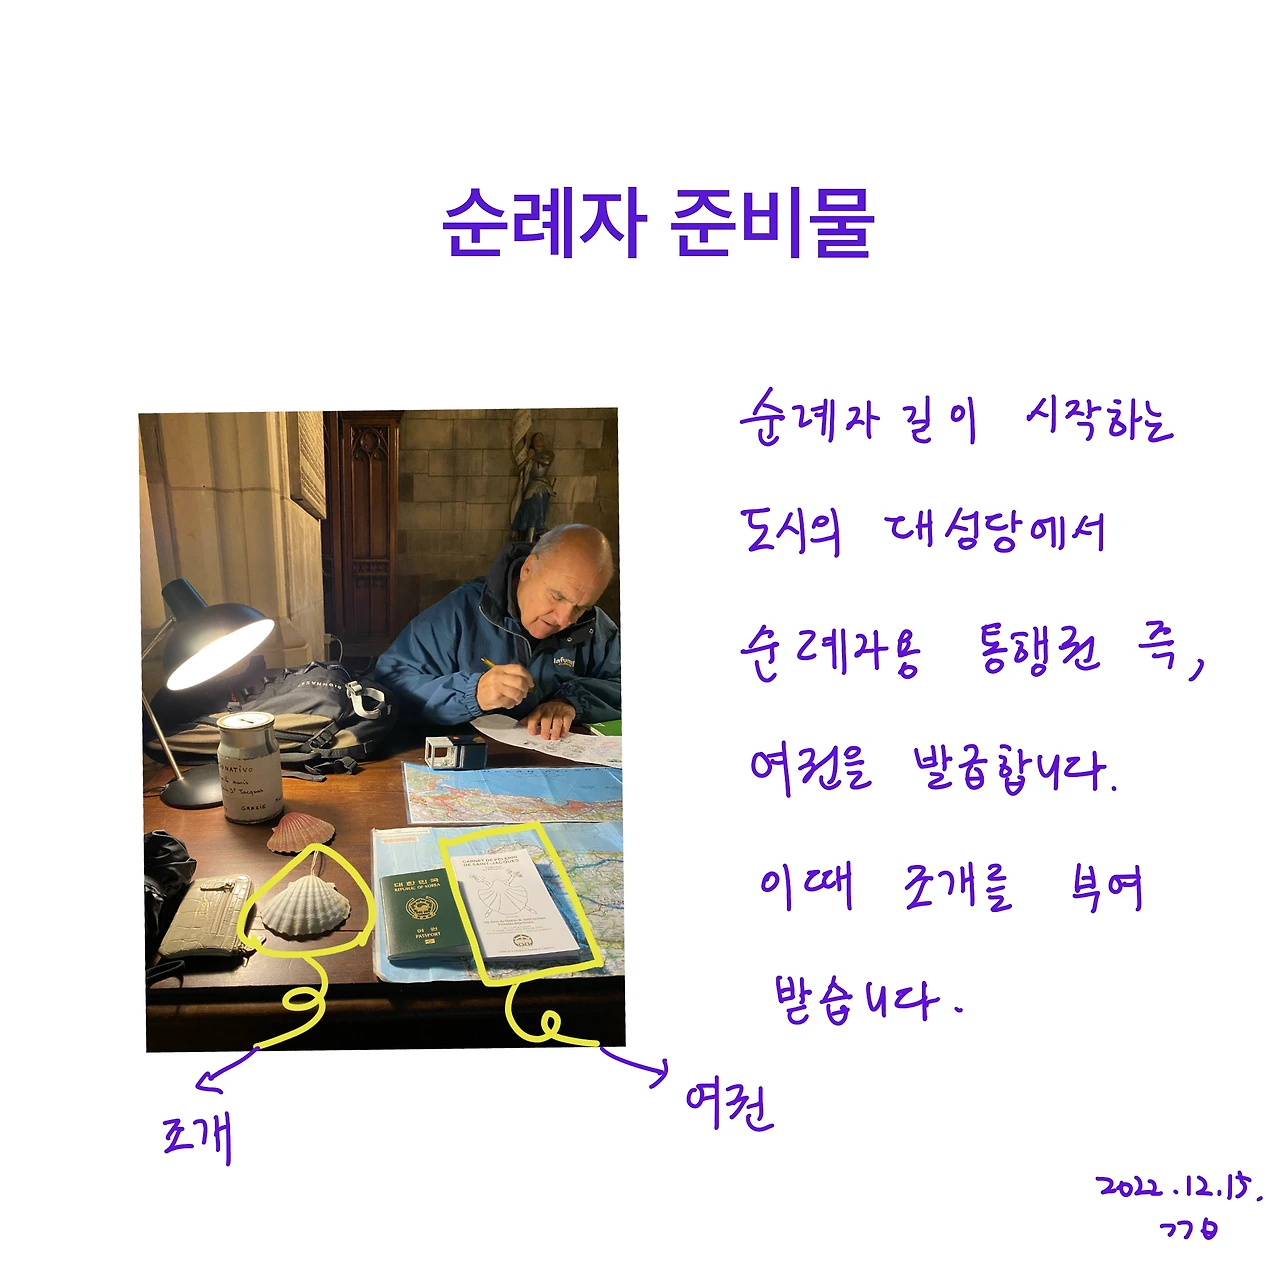 순례자 준비물
순례자 길이 시작하는
도시의 대성당에서
순례자용 통행권 즉,
여권을 발급합니다.
이때 조개를 부여
받습니다.
GRAZIE
대한민국
REPUBLIC OF KOREA
여권
PASSPORT
CARNET DE PELERIN
DE SAINT-JACQUES
조개
여권
2022.12.15.
ㄱㄱㅎ